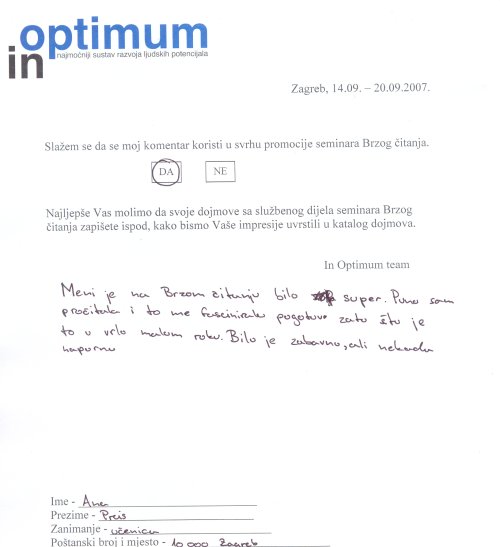 optimum
in
najmoćniji sustav razvoja ljudskih potencijala
Zagreb, 14.09. – 20.09.2007.
Slažem se da se moj komentar koristi u svrhu promocije seminara Brzog čitanja.
DA NE
Najljepše Vas molimo da svoje dojmove sa službenog dijela seminara Brzog
čitanja zapišete ispod, kako bismo Vaše impresije uvrstili u katalog dojmova.
In Optimum team
Meni je na Brzom čitanju bilo super. Puno sam
pročitala i to me fasciniralo pogotovo zato što je
to u vrlo malom roku. Bilo je zabavno, ali nekada
naporno
Ime - Ana
Prezime - Preis
Zanimanje - učenica
Poštanski broj i mjesto - 10 000 Zagreb